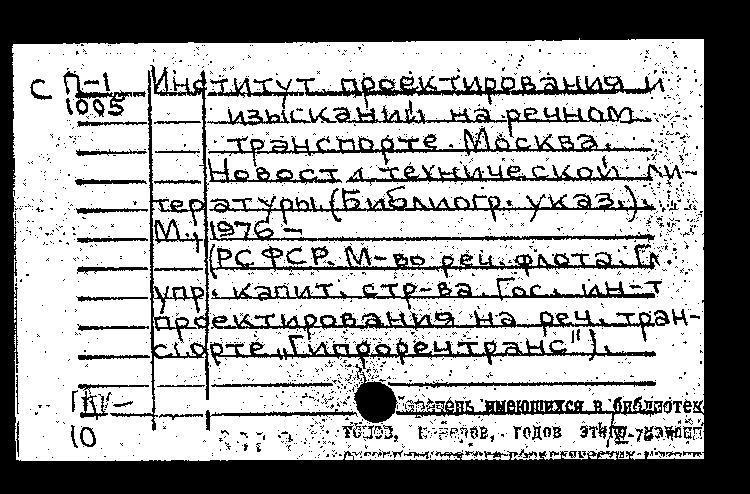 С П-1 Институт проектирования и
1005 изысканий на речном
транспорте. Москва.
Новости технической ли-
тературы. (Библиогр. указ.).
М., 1976 –
(РСФСР. М-во реч. флота. Гл.
упр. капит. стр-ва. Гос. ин-т
проектирования на реч. тран-
спорте „Гипроречтранс").
имеющихся в библиотек
10
годов